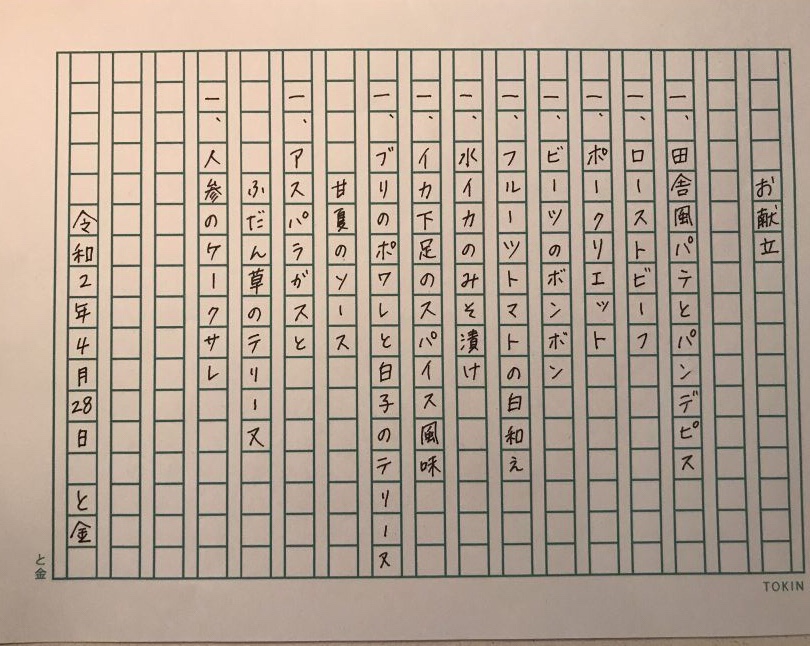 お献立
一、田舎風パテとパンデピス
一、ローストビーフ
一、ポークリエット
一、ビーツのボンボン
一、フルーツトマトの白和え
一、水イカのみそ漬け
一、イカ下足のスパイス風味
一、ブリのポワレと白子のテリーヌ
甘夏のソース
一、アスパラガスと
ふだん草のテリーヌ
一、人参のケークサレ
令和2年4月28日 と金
と金
TOKIN